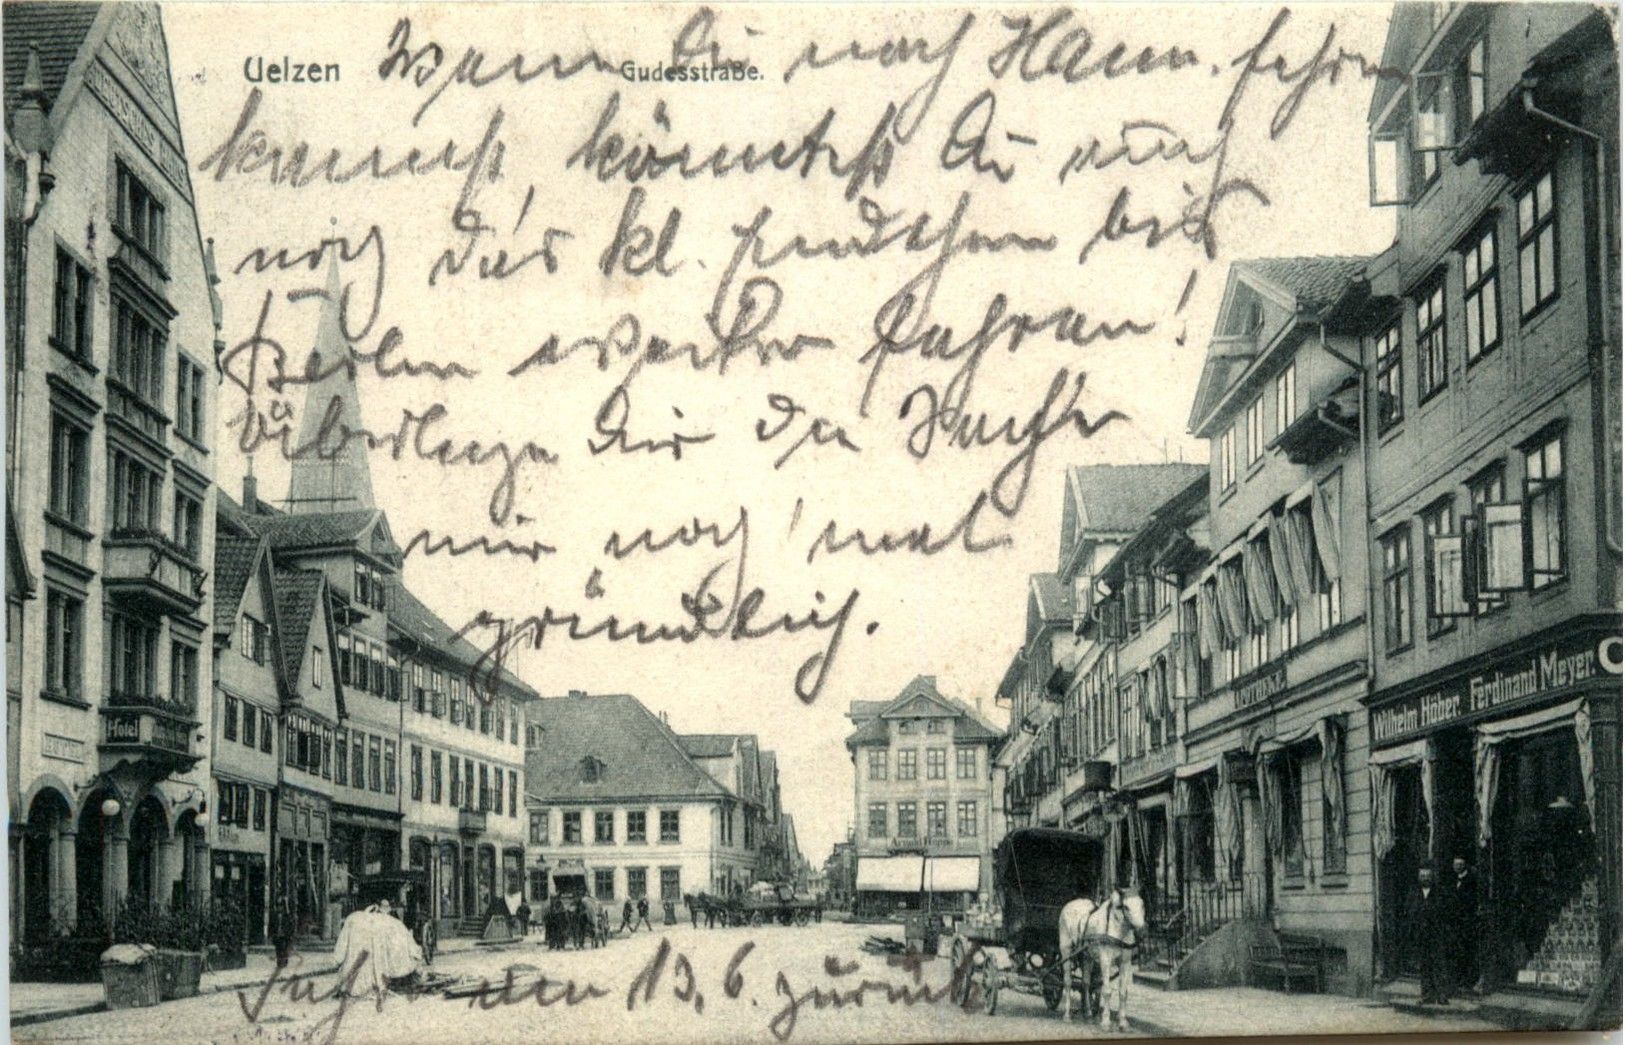 Uelzen
Gudesstraße.
Wenn Du nach Hann. fahren
kannst, könntest Du auch
noch das kl. Endchen bis
Berlin weiter fahren!
überlege Dir die Sache
nur noch 'mal
gründlich.
Fahre am 13. 6. zurück
Hotel
Wilhelm Höber.
Ferdinand Meyer.